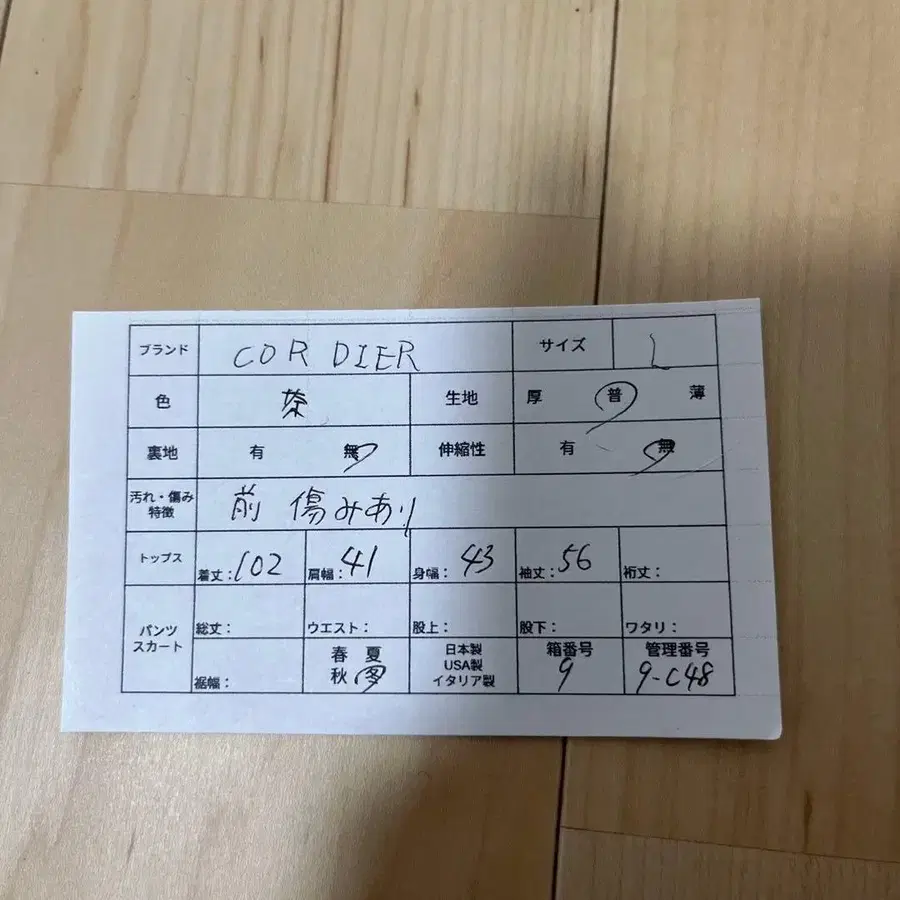 ブランド COR DIER サイズ L
色 茶 生地 厚 普 薄
裏地 有 無 伸縮性 有 無
汚れ・傷み
特徴 前 傷みあり
トップス 着丈：102 肩幅：41 身幅：43 袖丈：56 裄丈：
パンツ
スカート
総丈： ウエスト： 股上： 股下： ワタリ：
裾幅：
春 夏
秋 冬
日本製
USA製
イタリア製
箱番号
9
管理番号
9-C48